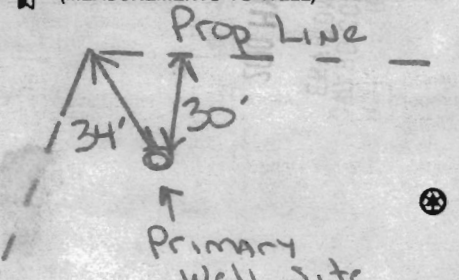 Prop Line
34' 30'
Primary
Well Site